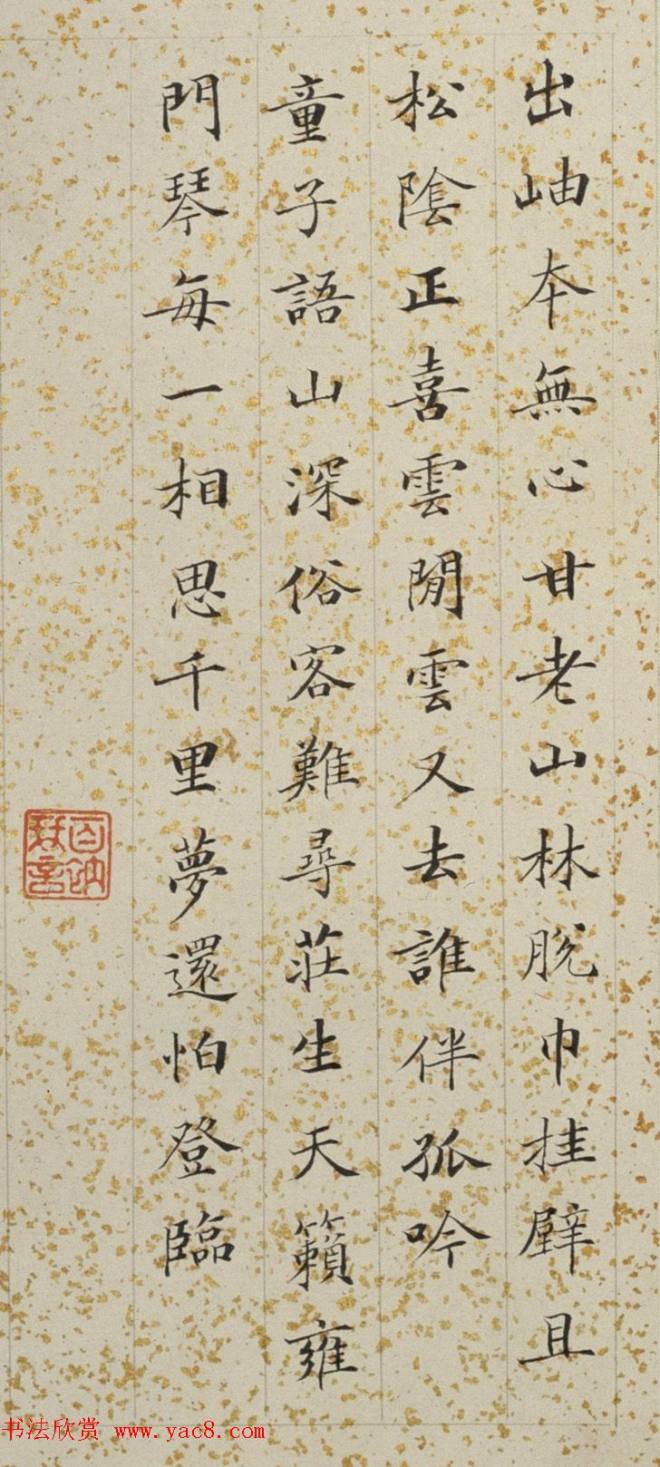 出岫本無心甘老山林脫巾挂壁且
松陰正喜雲閒雲又去誰伴孤吟
童子語山深俗客難尋莊生天籟雍
門琴每一相思千里夢還怕登臨
百衲琴言
书法欣赏 www.yac8.com